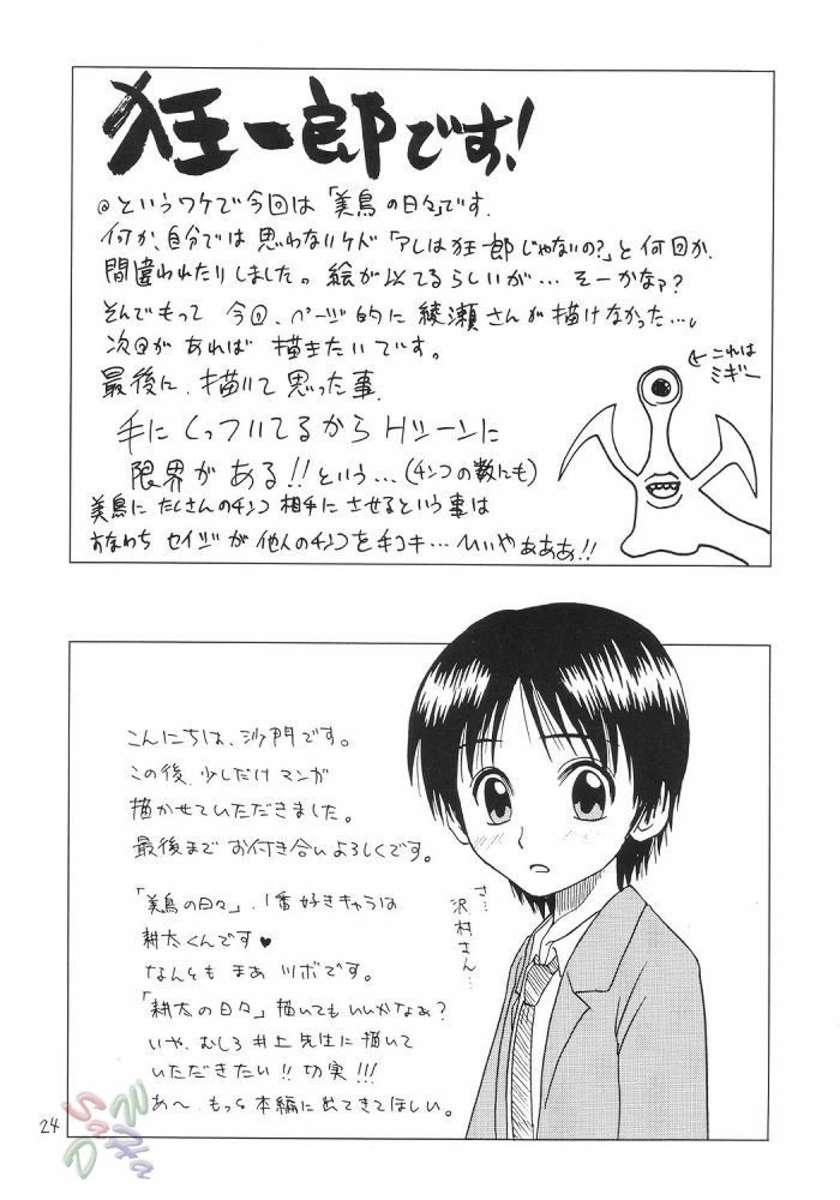 狂一郎です!
@というワケで今回は「美鳥の日々」です.
何か、自分では思わないケド「アレは狂一郎じゃないの?」と何回か
間違われたりしました。絵が似てるらしいが…そーかなァ?
そんでもって 今回、ページ的に綾瀬さんが描けなかった…。
次回があれば 描きたいです。
最後に、描いて思った事.
手にくっついてるからHシーンに
限界がある!!という…(チンコの数にも)
美鳥に たくさんのチンコ相手に させるという事は
すなわち セイジが他人のチンコを手コキ…ひいやぁぁぁ!!
←これは
ミギー
こんにちは、沙門です。
この後、少しだけマンガ
描かせていただきました。
最後まで お付き合いよろしくです。
「美鳥の日々」、1番好きキャラは
耕太くんです♥
なんとも まあ ツボです。
「耕太の日々」描いてもいいかなぁ?
いや、むしろ 井上先生に描いて
いただきたい!! 切実!!!
あ〜、もっと本編に出てきてほしい。
さ…
沢村さん…
24